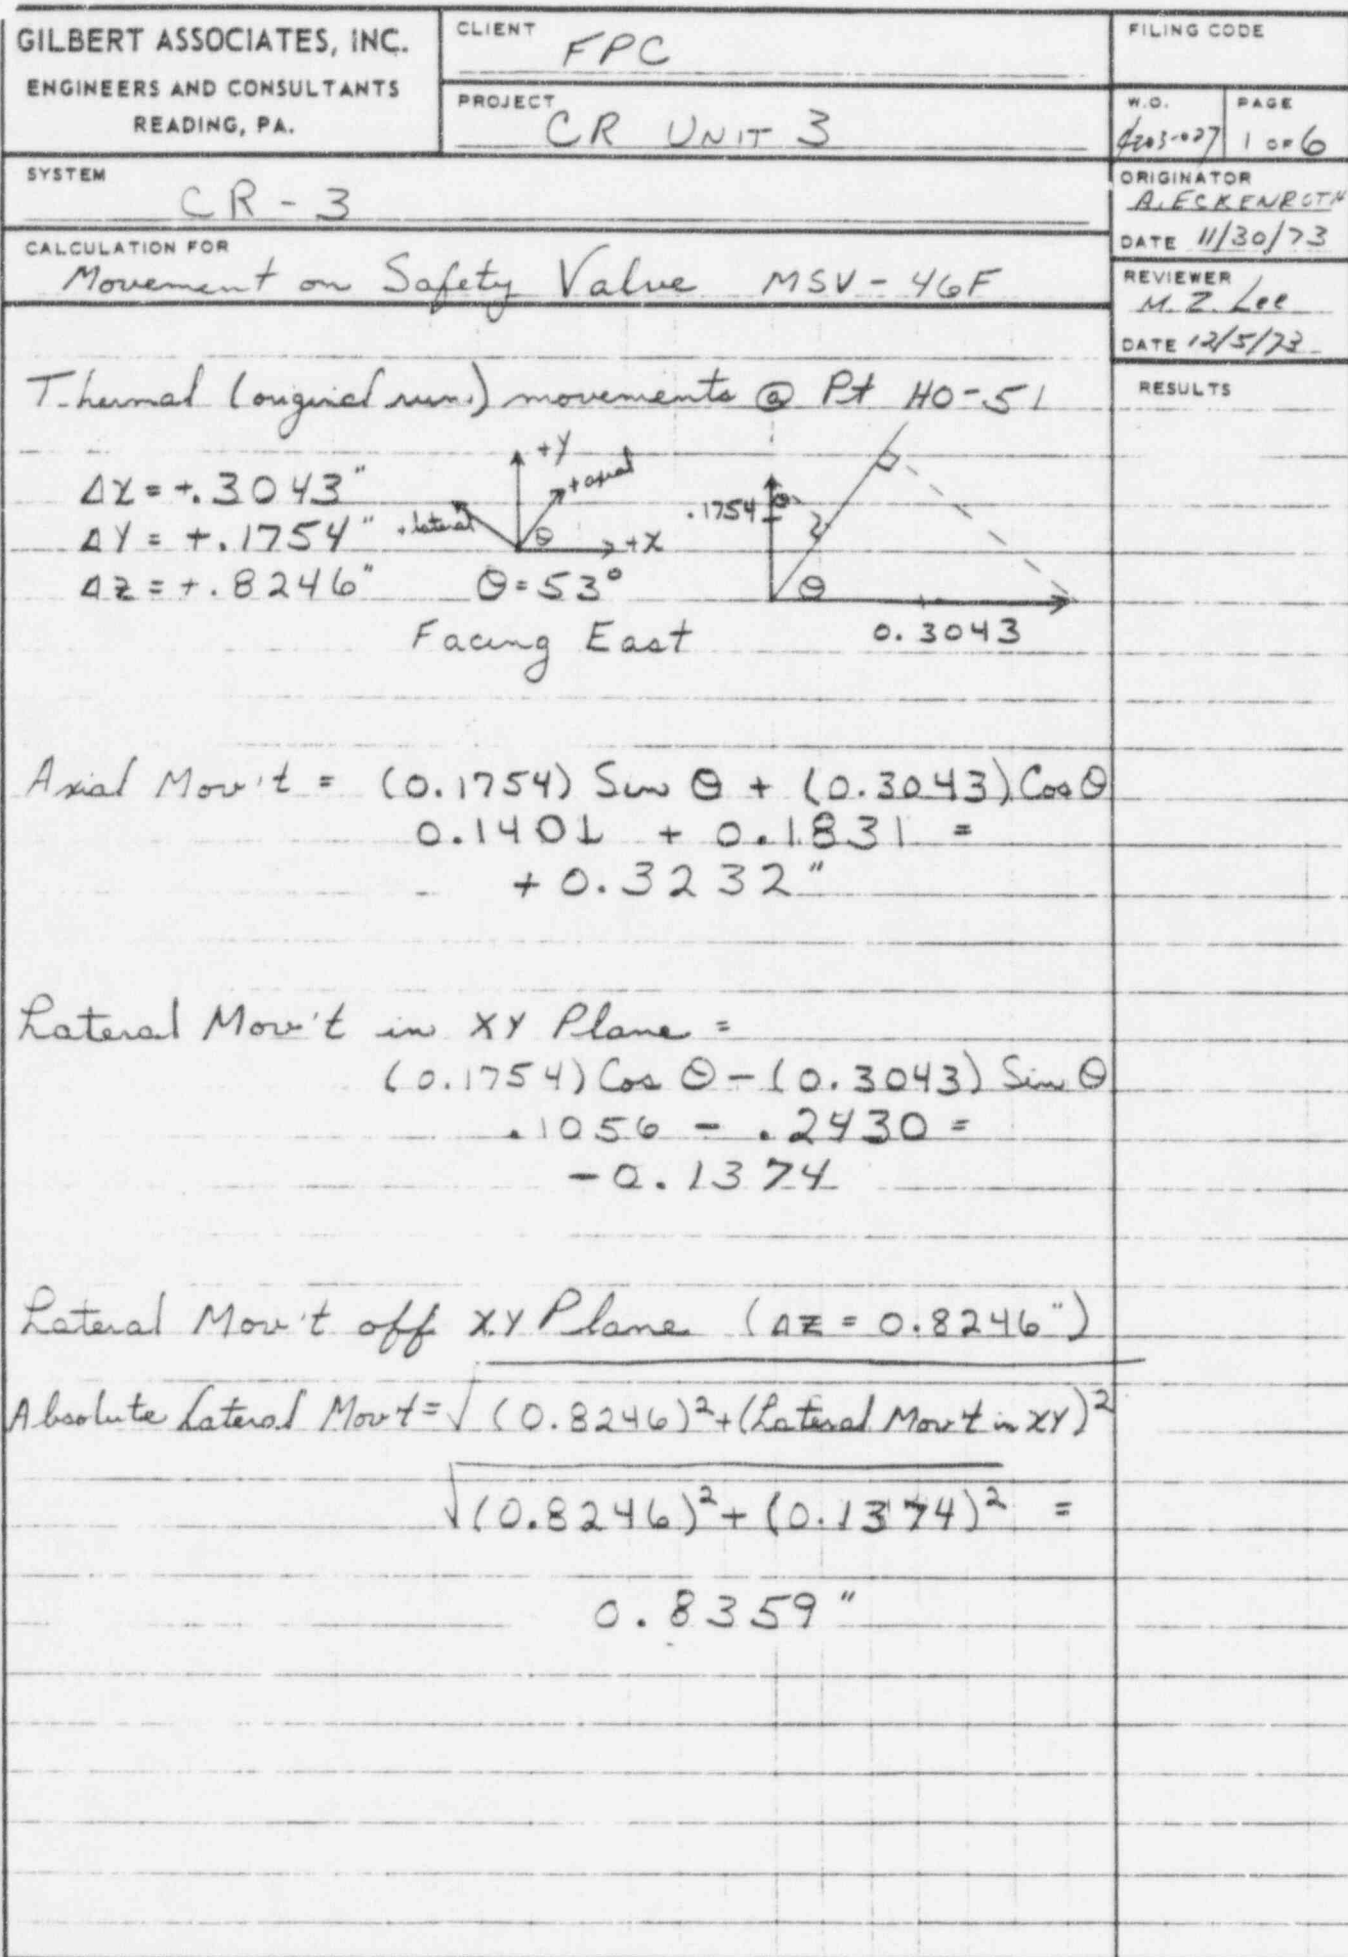 GILBERT ASSOCIATES, INC.
ENGINEERS AND CONSULTANTS
READING, PA.
CLIENT FPC
PROJECT CR UNIT 3
FILING CODE
W.O. 4203-027
PAGE 1 OF 6
SYSTEM CR-3
ORIGINATOR A. ECKENROTH
DATE 11/30/73
CALCULATION FOR
Movement on Safety Valve MSV-46F
REVIEWER M. Z. Lee
DATE 12/5/73
RESULTS
Thermal (original run) movements @ Pt HO-51
ΔX = +.3043"
ΔY = +.1754"
ΔZ = +.8246"
+Y
+axial
+lateral
θ
+X
θ = 53°
Facing East
.1754
θ
θ
0.3043
Axial Mov't = (0.1754) Sin θ + (0.3043) Cos θ
0.1401 + 0.1831 =
+0.3232"
Lateral Mov't in XY Plane =
(0.1754) Cos θ - (0.3043) Sin θ
.1056 - .2430 =
-0.1374
Lateral Mov't off XY Plane (ΔZ = 0.8246")
Absolute Lateral Mov't = √(0.8246)² + (Lateral Mov't in XY)²
√(0.8246)² + (0.1374)² =
0.8359"